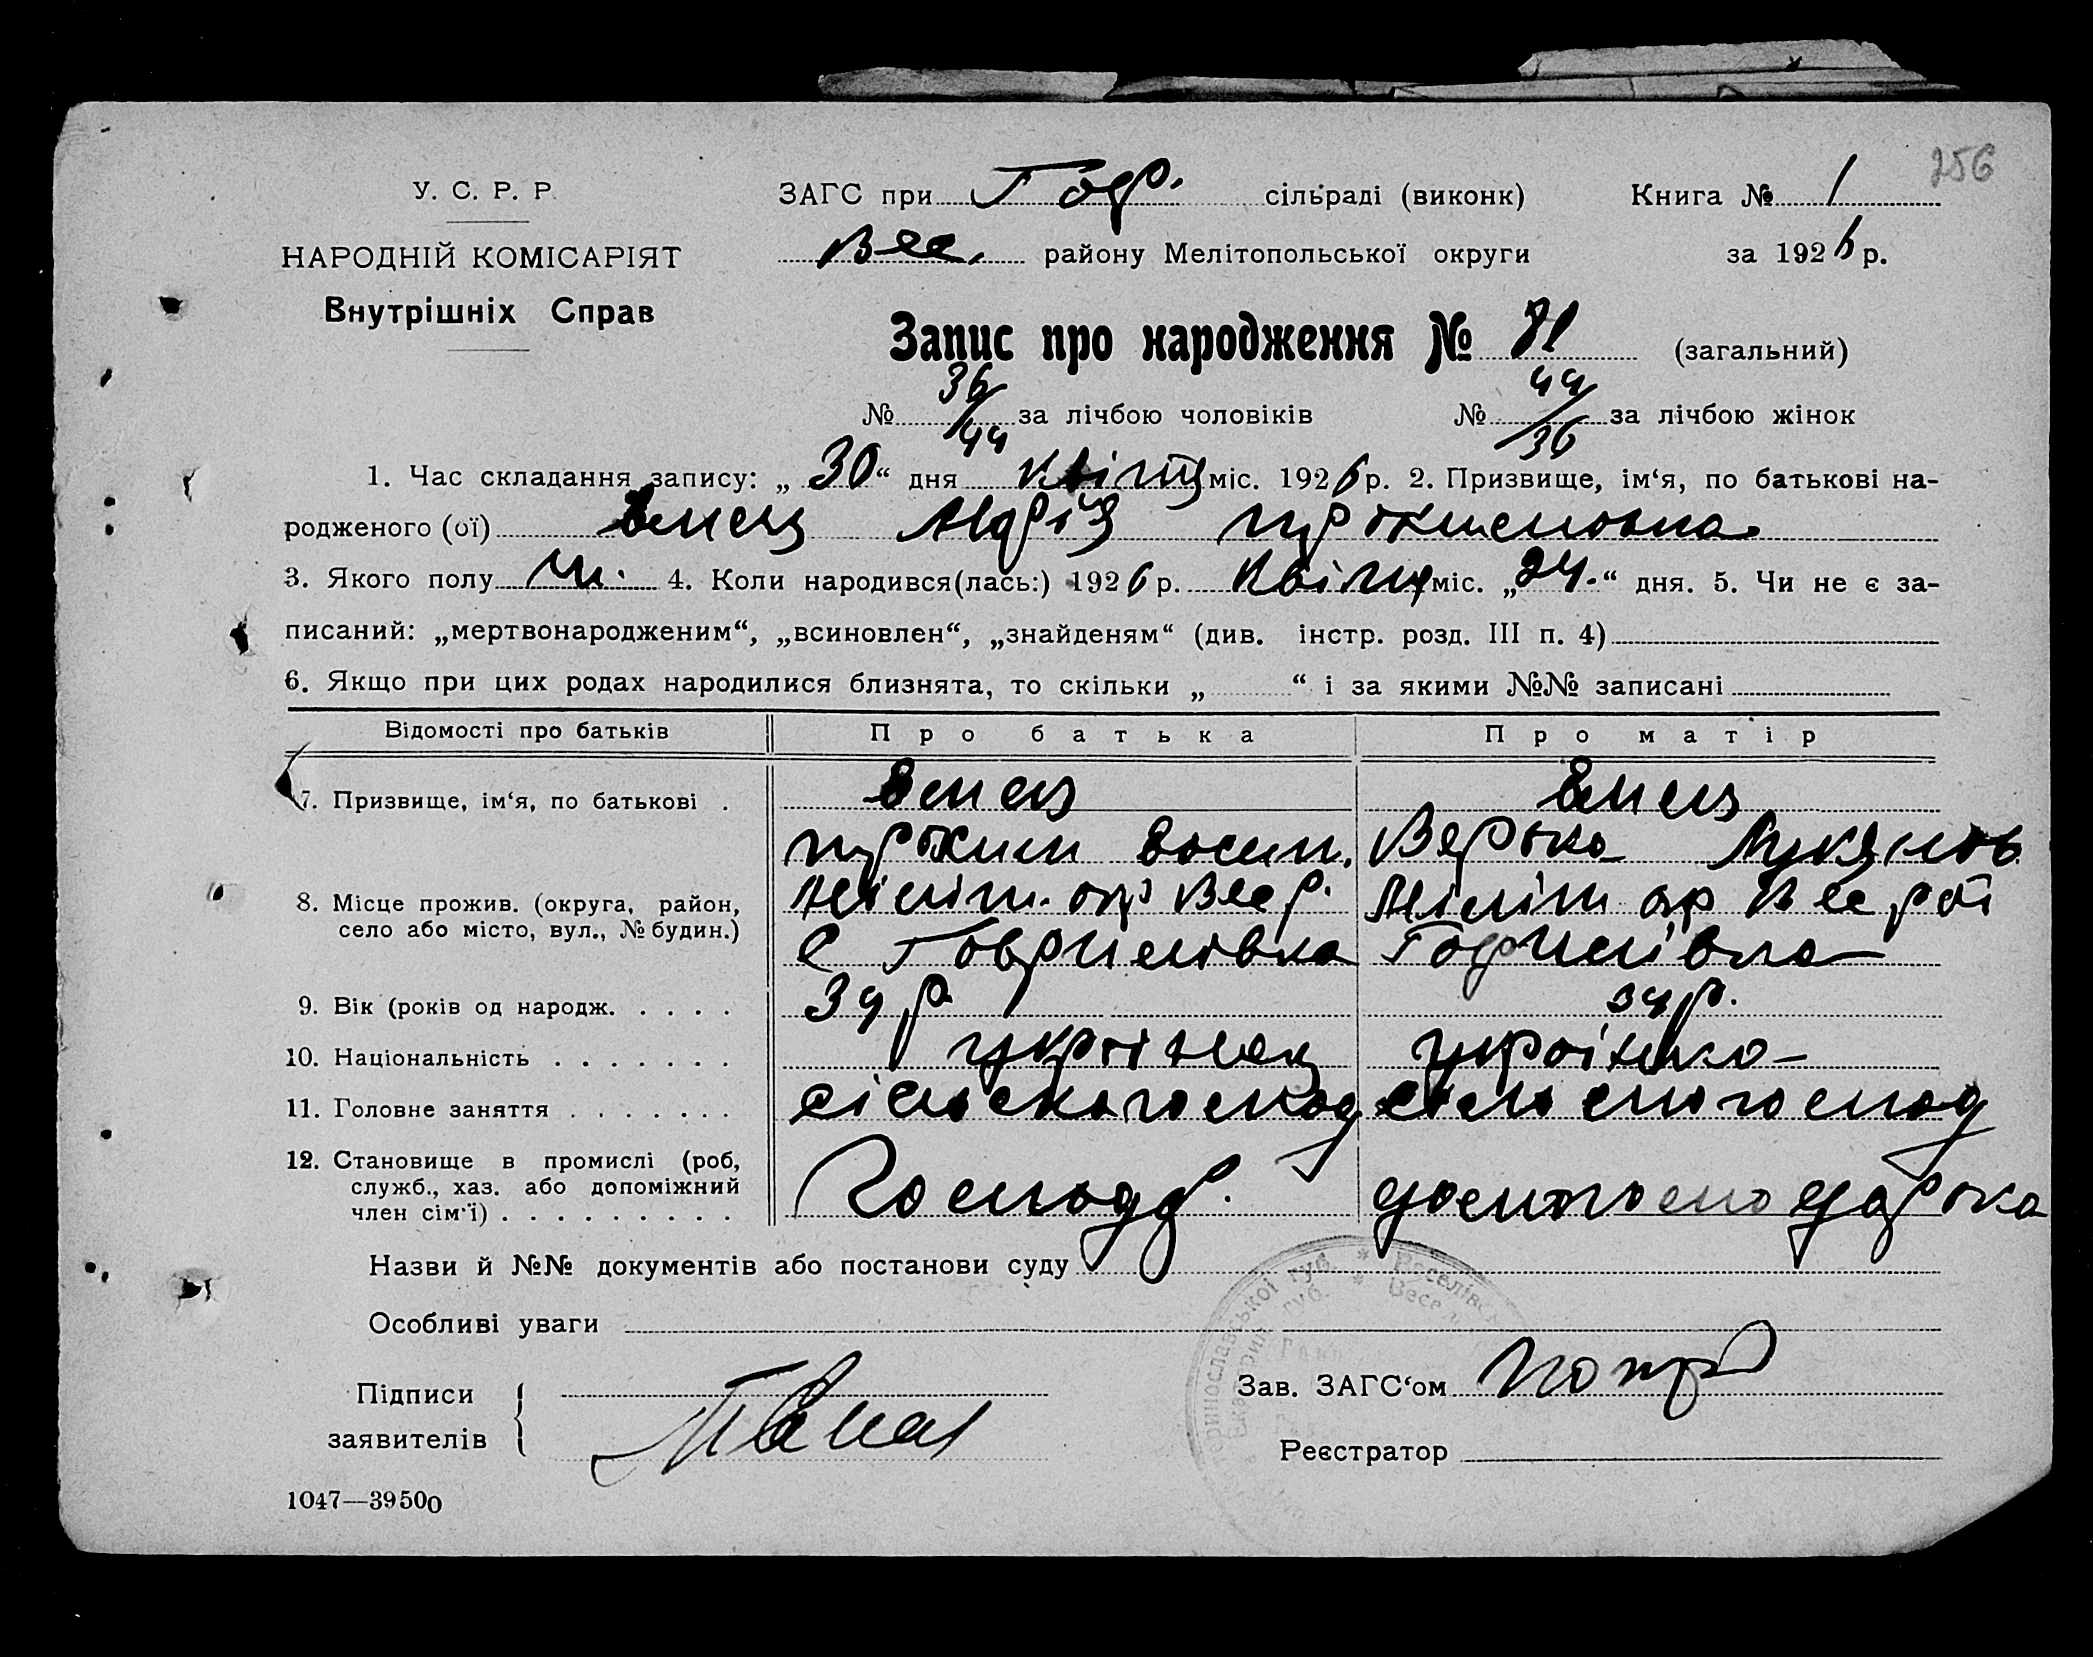 256
У. С. Р. Р.
НАРОДНІЙ КОМІСАРІЯТ
Внутрішніх Справ
ЗАГС при Гавр. сільраді (виконк)
Вес. району Мелітопольської округи
Книга № 1
за 1926 р.
Запис про народження № 81 (загальний)
№ 36/44 за лічбою чоловіків № 44/36 за лічбою жінок
1. Час складання запису: „ 30 “ дня квітня міс. 1926 р. 2. Призвище, ім‘я, по батькові на-
родженого (ої) Марія
3. Якого полу 4. Коли народився(лась:) 1926 р. квітня міс. „ 24. “ дня. 5. Чи не є за-
писаний: „мертвонародженим“, „всиновлен“, „знайденям“ (див. інстр. розд. III п. 4)
6. Якщо при цих родах народилися близнята, то скільки „ “ і за якими №№ записані
Відомості про батьків Про батька Про матір
7. Призвище, ім‘я, по батькові .
8. Місце прожив. (округа, район, Меліт. окр Вес р. Меліт окр Вес р
село або місто, вул., № будин.) С Гаврилівка Гаврилівка
9. Вік (років од народж. . . . . 34 р 34 р.
10. Національність . . . . . . . українец українка
11. Головне заняття . . . . . . .
12. Становище в промислі (роб,
служб., хаз. або допоміжний
член сім‘ї) . . . . . . . . . Господар.
Назви й №№ документів або постанови суду
Особливі уваги
Підписи
заявителів
Зав. ЗАГС‘ом
Реєстратор
1047—39500